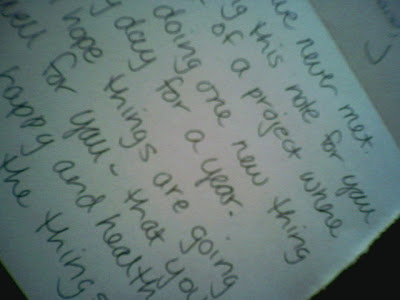 ve never met.
g this note for you
of a project where
doing one new thing
y day for a year.
hope things are going
ell for you - that you
happy and health
the things